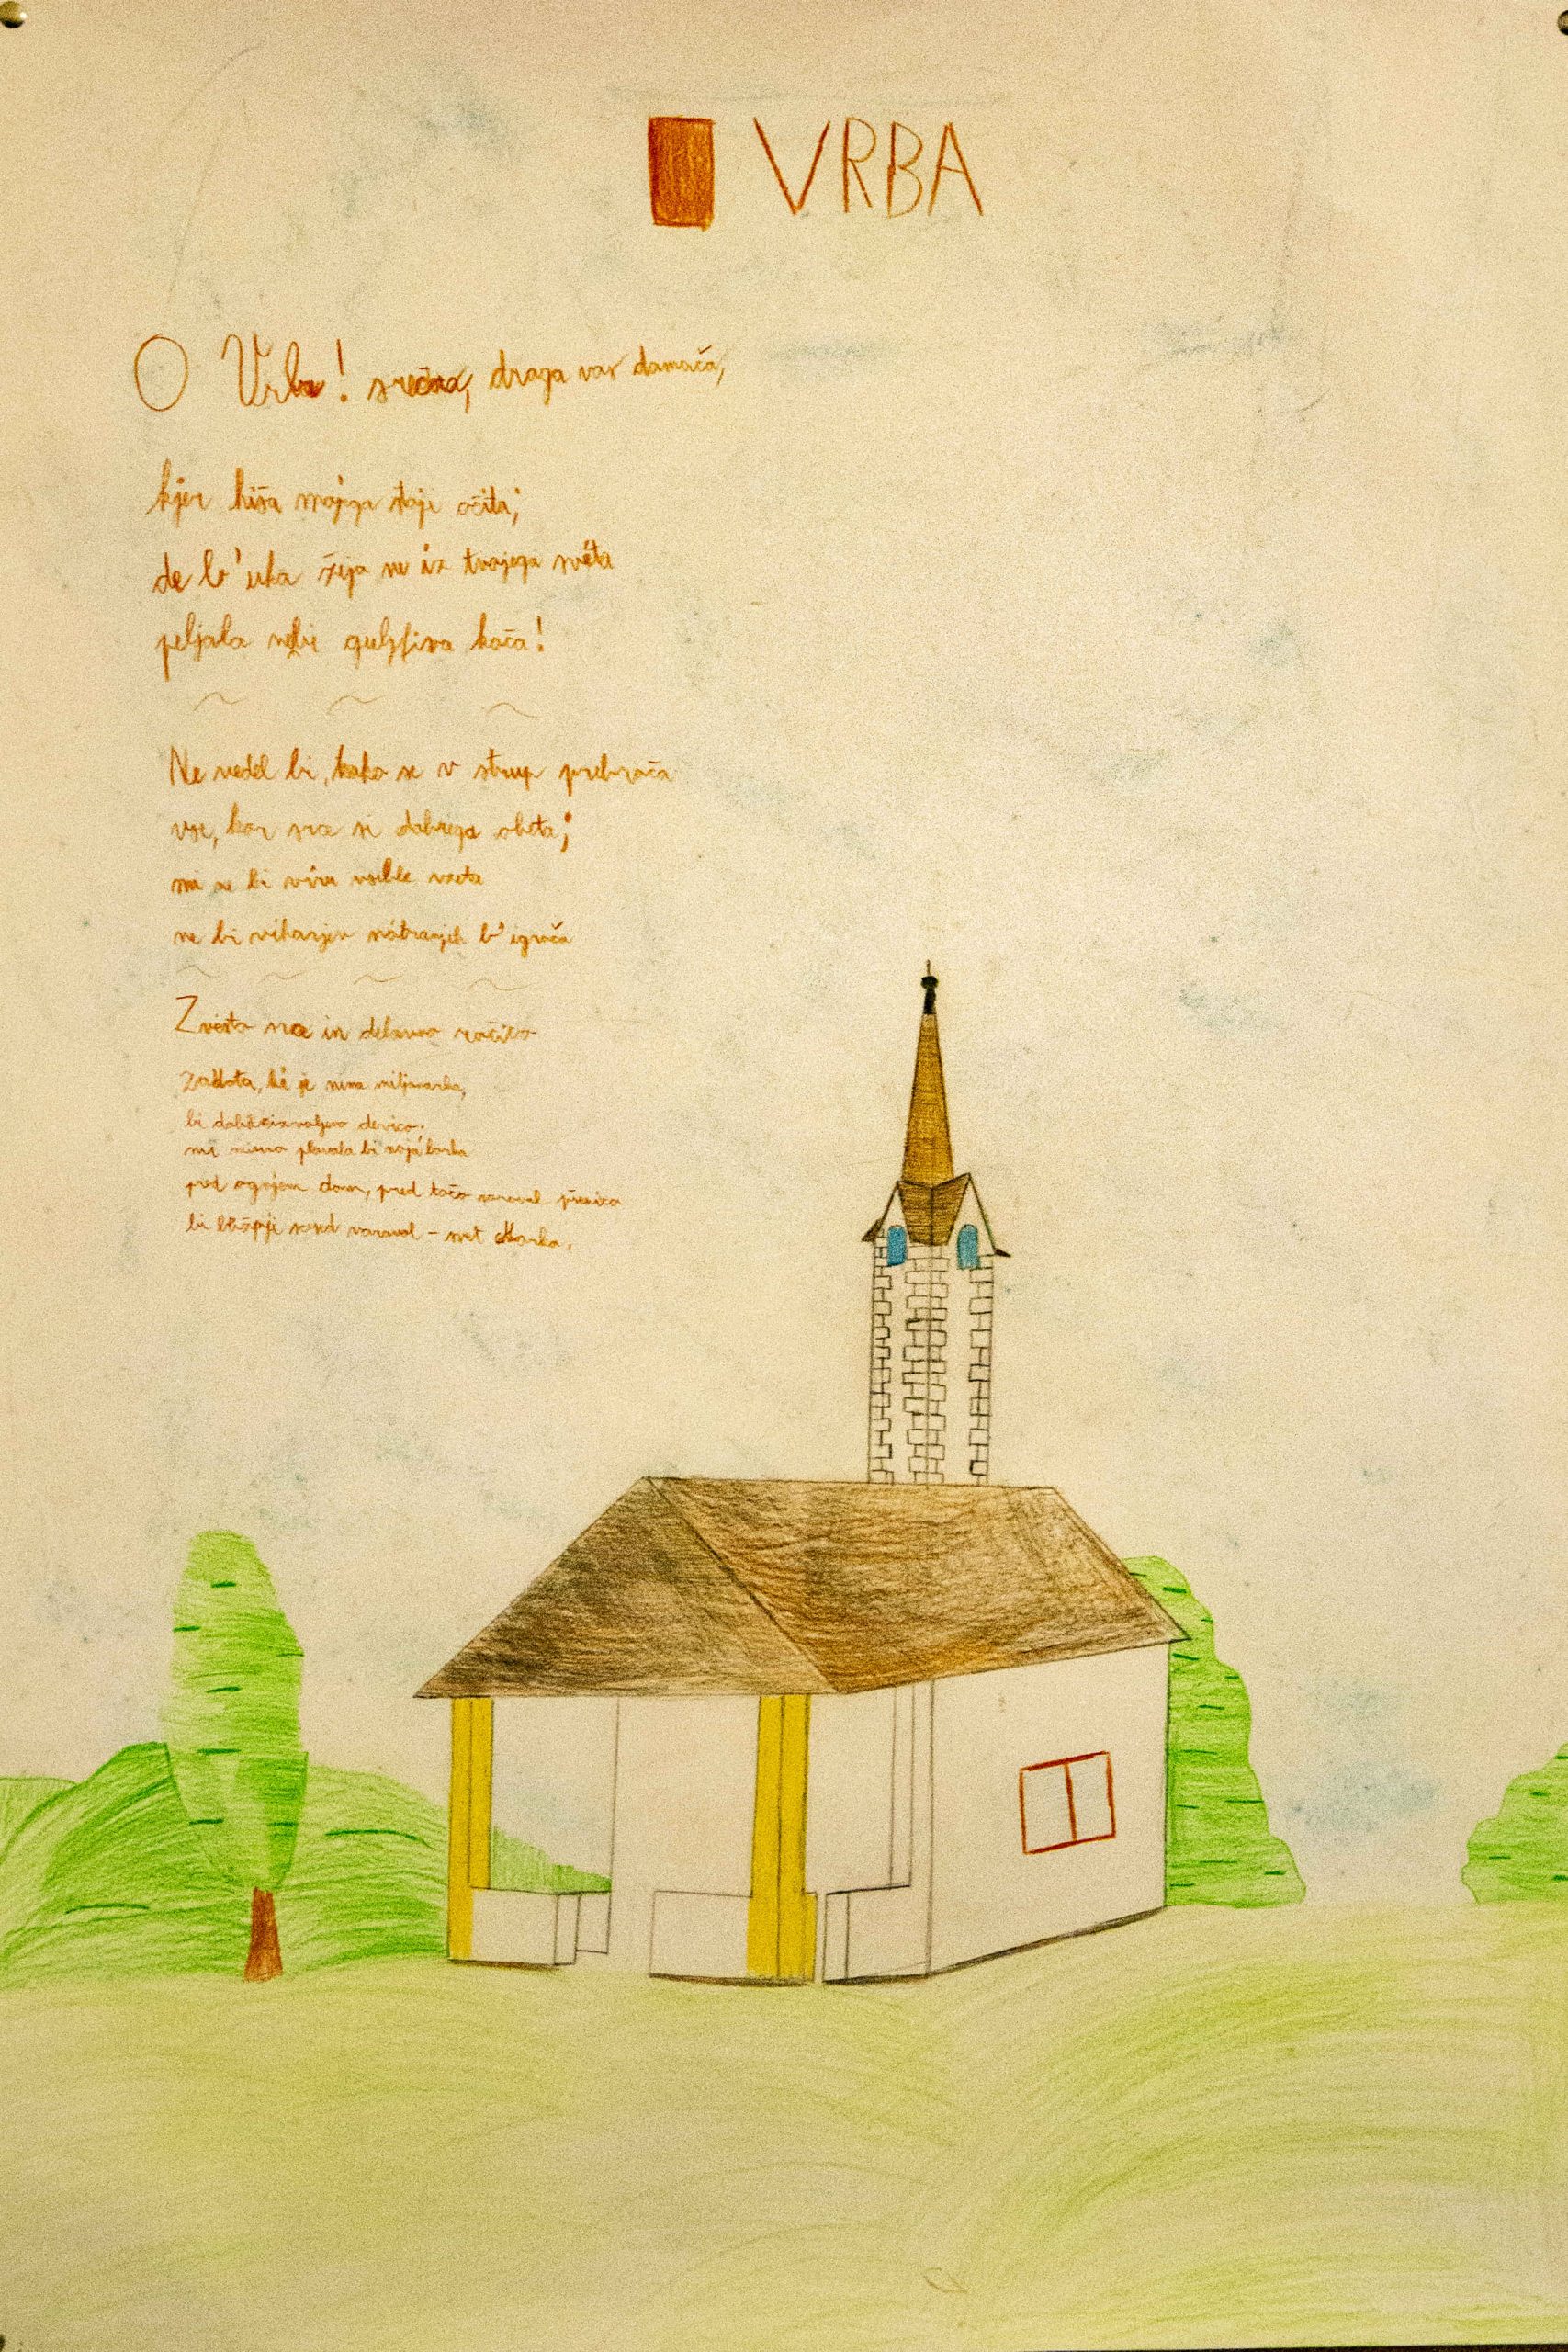 VRBA
O Vrba! srečna, draga vas domača,
kjer hiša mojega stoji očeta;
de b' uka žeja ne iz tvojega svéta
peljala nebi goljfiva kača!
Ne vedel bi, kako se v strup prebrača
vse, kar srce si dobrega obeta;
mi ne bi vera v sebe vzeta
ne bi viharjev nótranjih b' igrača
Zvesto srce in delavno ročico
za doto, ki je nima miljonarka,
bi dobil izvoljeno devico;
mi mirno plavala bi moja barka
pred ognjam dom, pred točo varoval pšenico
bi bližnji sosed varoval - svet Marka.